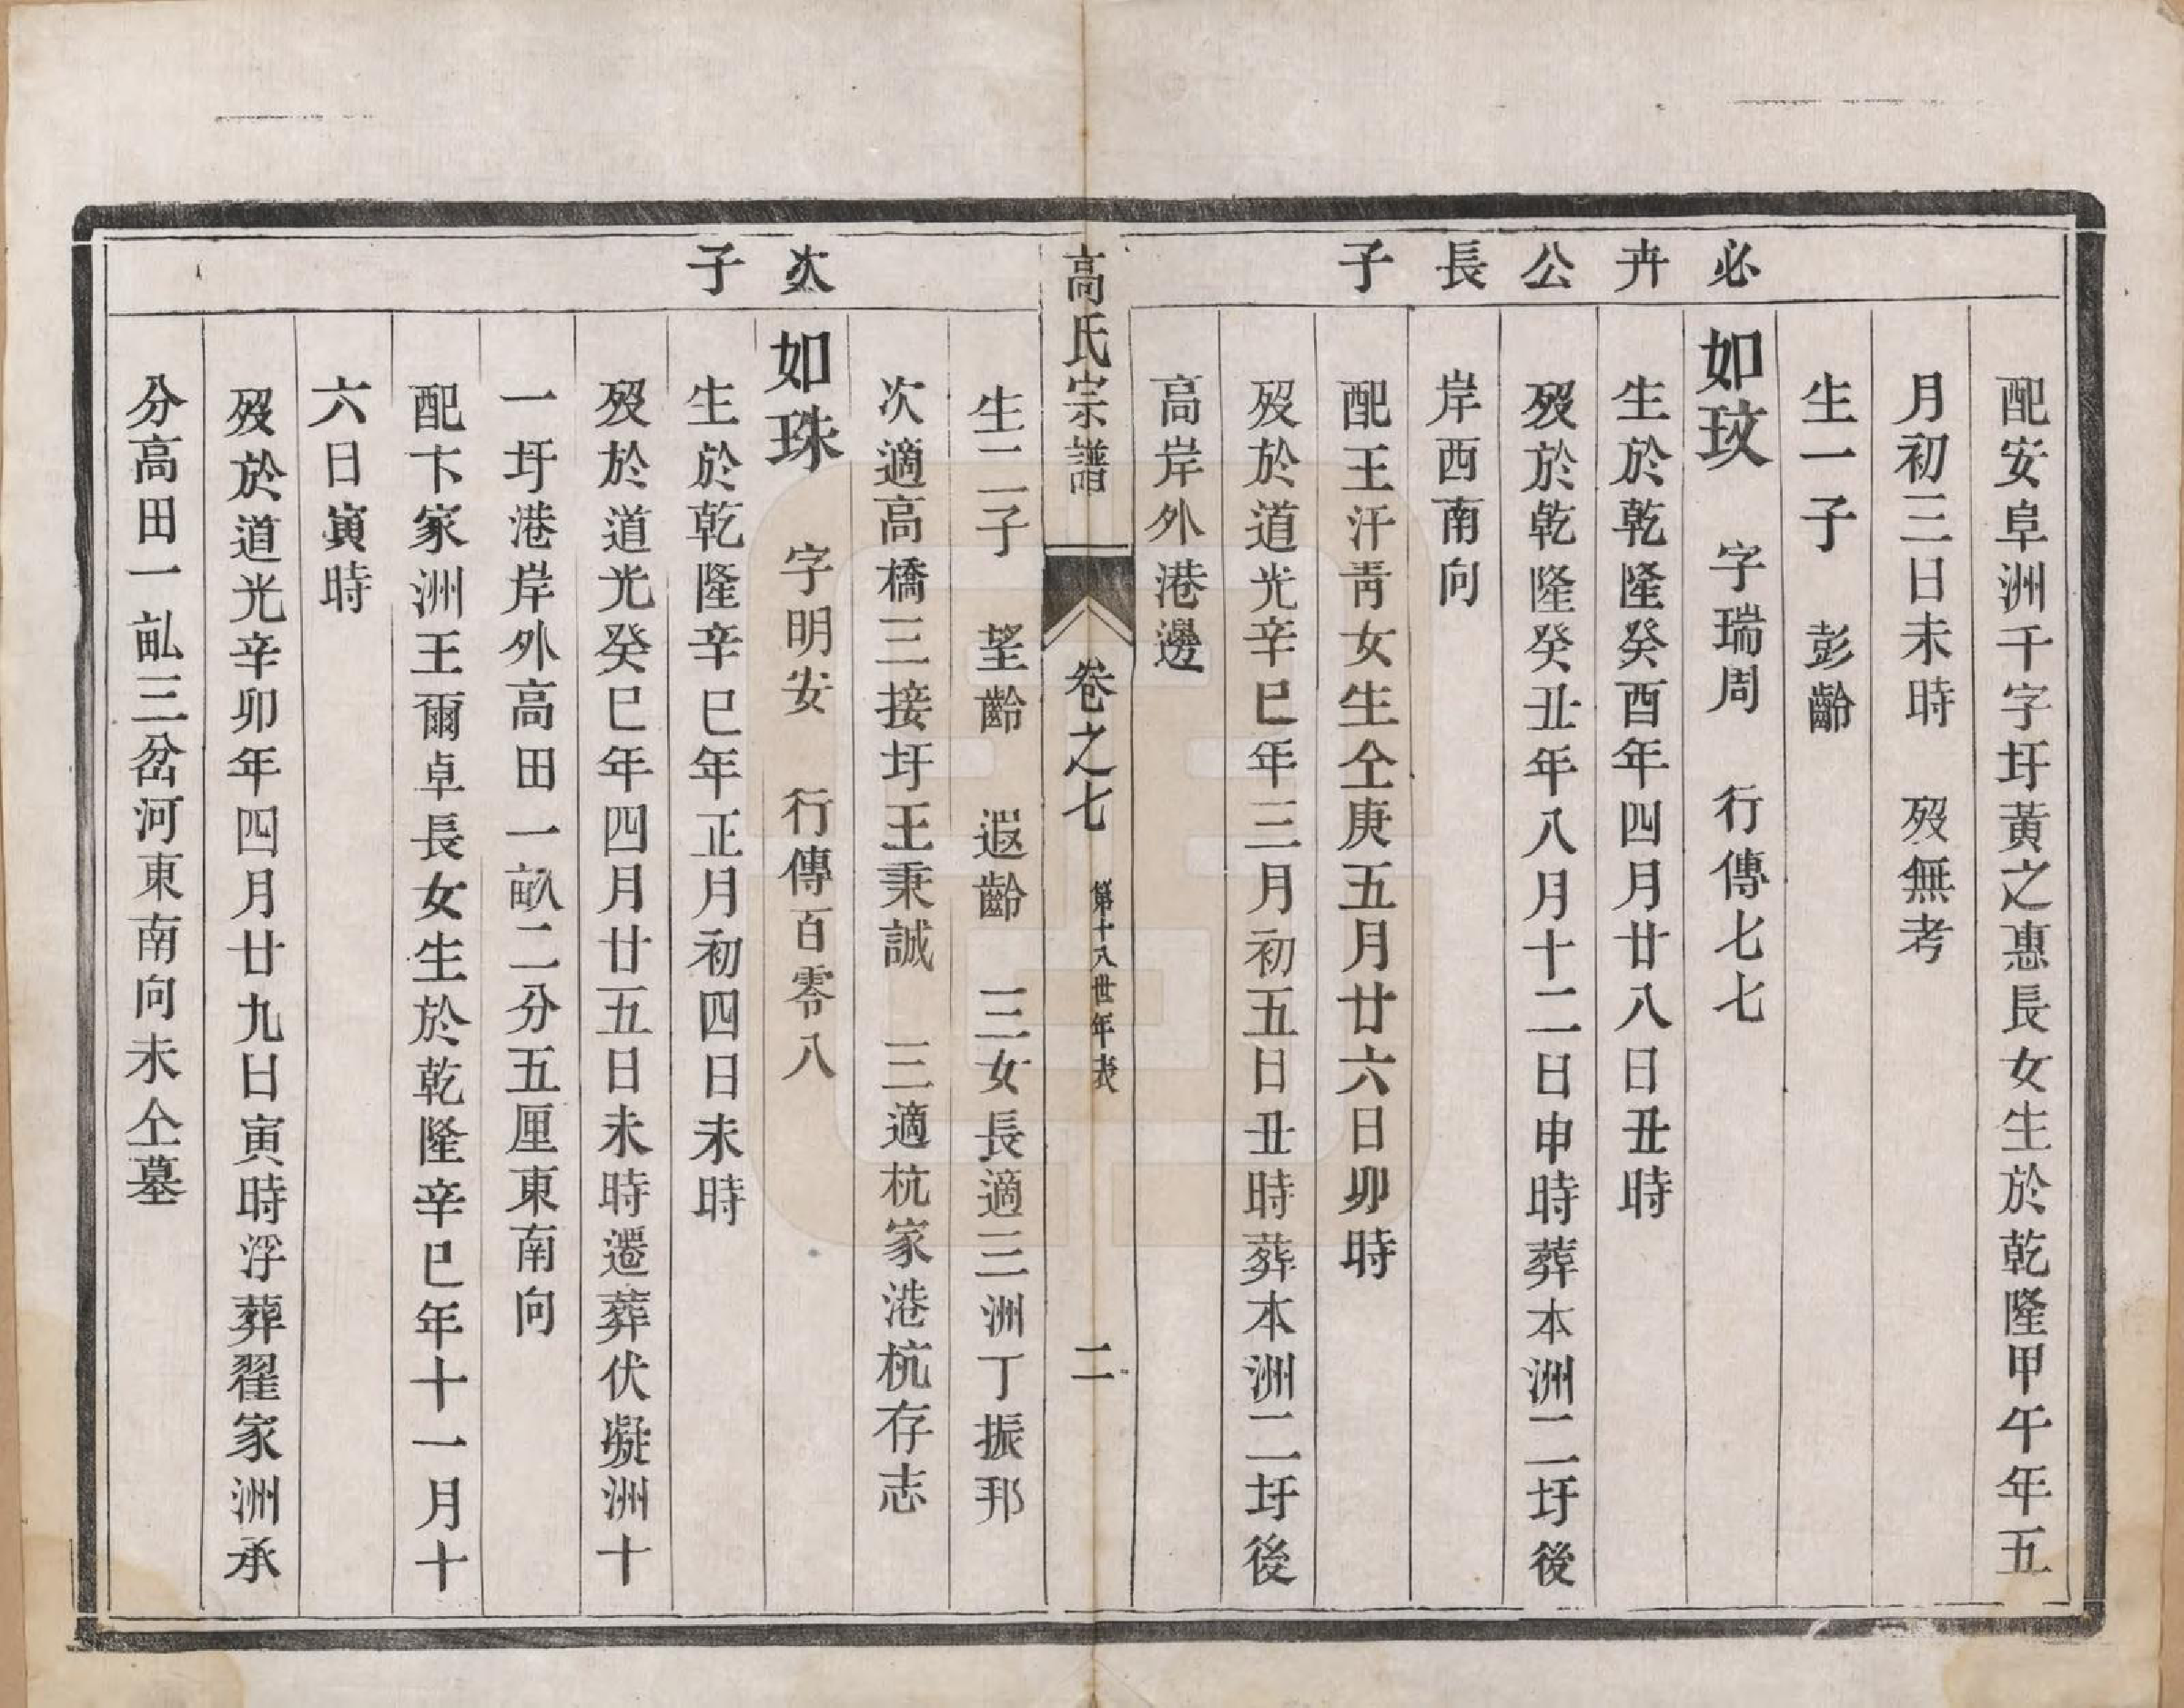 配安阜洲千字圩黃之惠長女生於乾隆甲午年五
月初三日未時　歿無考
生一子　彭齡
必卉公長子
如玟　字瑞周　行傳七七
生於乾隆癸酉年四月廿八日丑時
歿於乾隆癸丑年八月十二日申時葬本洲二圩後
岸西南向
配王汗靑女生仝庚五月廿六日卯時
歿於道光辛巳年三月初五日丑時葬本洲二圩後
高岸外港邊
高氏宗譜　卷之七　第十八世年表　二
生二子　望齡　遐齡　三女長適三洲丁振邦
次適高橋三接圩王秉誠　三適杭家港杭存志
次子
如珠　字明安　行傳百零八
生於乾隆辛巳年正月初四日未時
歿於道光癸巳年四月廿五日未時遷葬伏凝洲十
一圩港岸外高田一畝二分五厘東南向
配卞家洲王爾卓長女生於乾隆辛巳年十一月十
六日寅時
歿於道光辛卯年四月廿九日寅時浮葬翟家洲承
分高田一畆三岔河東南向未仝墓